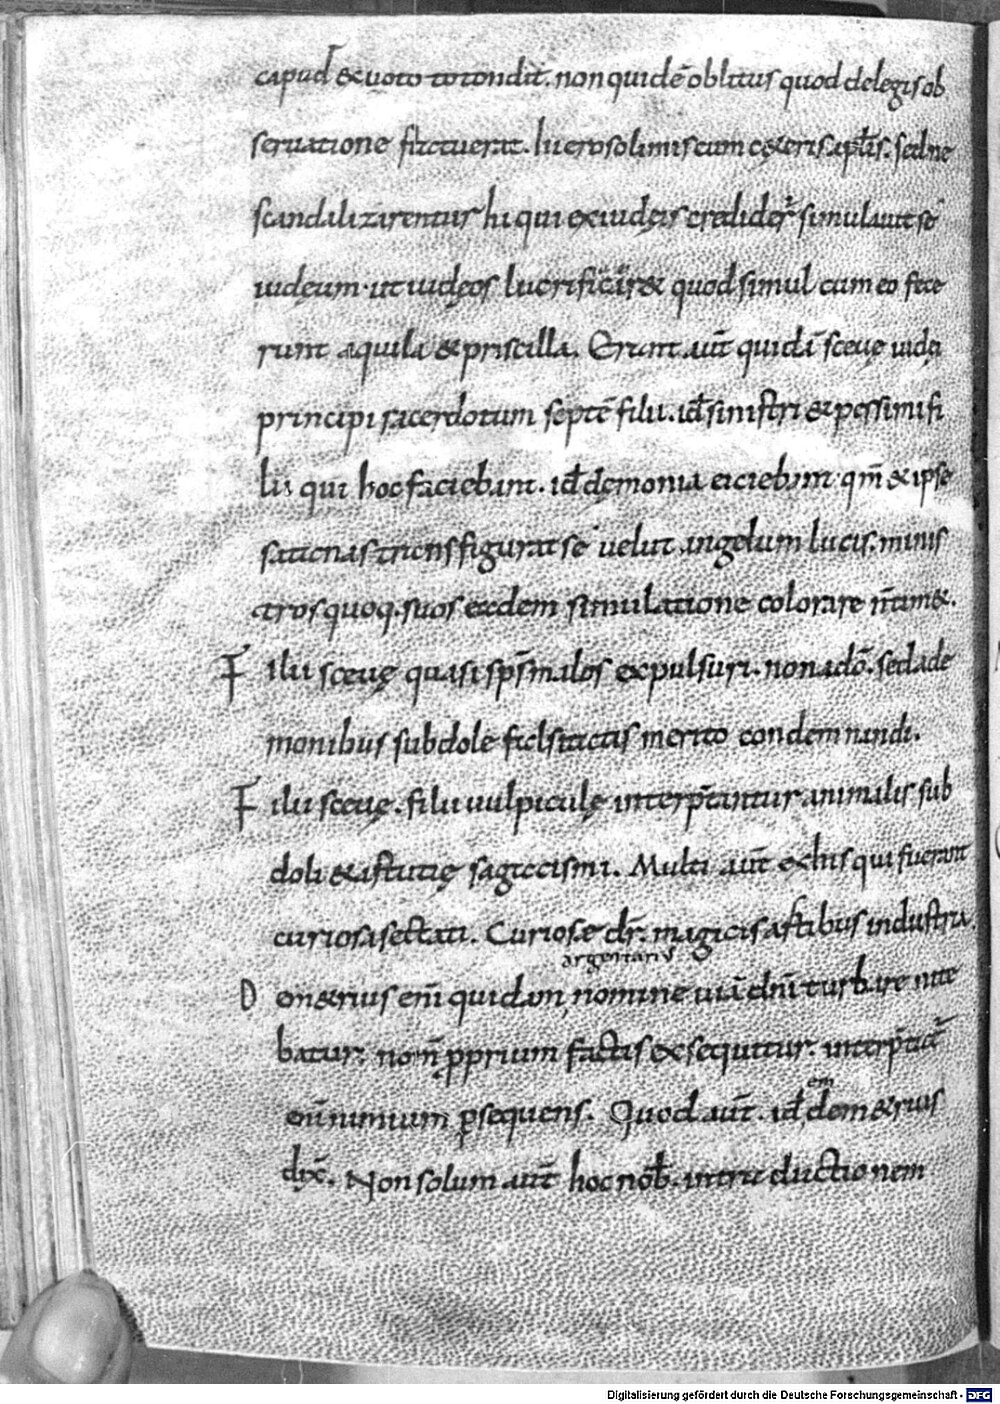 capud & uoto totondit. non quidē oblitus quod de legis ob
seruatione statuerat. hierosolimis cum cęteris aplis. sed ne
scandalizarentur hi qui ex iudęis credider̄ simulauit se
iudęum. ut iudęos lucrificar& quod simul cum eo fece
runt aquila & priscilla. Erant aut̄ quidā sceuę iudęi
principi sacerdotum septē filii. id̄ sinistri & pessimi fi
lii qui hoc faciebant. id̄ dęmonia eiciebant qm̄ & ipse
satanas transfigurat se uelut angelum lucis. minis
tros quoq. suos eadem simulatione colorare n̄ tim&.
Filii sceuę quasi sps̄ malos expulsuri. non a dō. sed a de
monibus subdole falsitatis merito condemnandi.
Filii sceuę. filii uulpiculę interp̄tantur animalis sub
doli & astutię sagacissimi. Multi aut̄ ex his qui fuerant
curiosa sectati. Curiosę dr̄. magicis artibus industria.
argentariu
Dem&rius eni quidam, nomine uiā dnī turbare nite
batur. nom̄ pprium factis exsequitur. interp̄tat
enī nimium psequens. Quod aut̄. id̄ dem&rius
em
dix̄. Non solum aut̄ hoc nob̄. intra ductionem
Digitalisierung gefördert durch die Deutsche Forschungsgemeinschaft - DFG